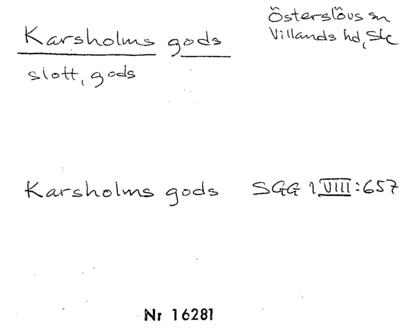 Karsholms gods
Österslövs sn
Villands hd, Sk
slott, gods
Karsholms gods SGG 1 VIII:657
Nr 16281